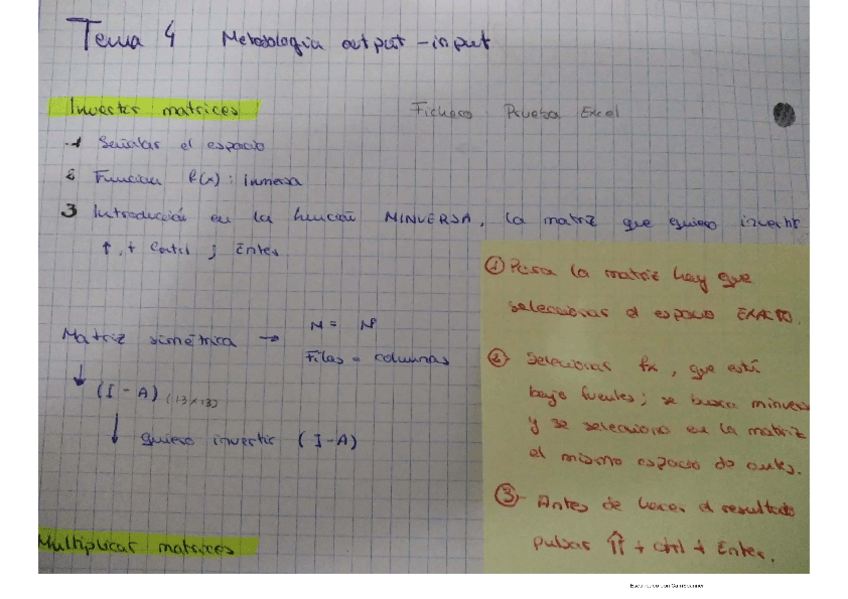 Tema 4 Metodologia output-input
Invertir matrices Fichero Prueba Excel
1 Señalar el espacio
2 Funcion f(x): inversa
3 Introducción en la función MINVERSA, la matriz que quiero invertir
↑, + Contrl ; Enter
Matriz simétrica → N = Nº
Filas = columnas
↓ (I - A) (13x13)
↓ quiero invertir (I-A)
Multiplicar matrices
① Para la matriz hay que
seleccionar el espacio EXACTO.
② Selecionar fx, que está
bajo fuentes; se busca minvers
y se selecciona en la matriz
el mismo espacio de antes.
③ - Antes de hacer el resultado
pulsar ⇑ + ctrl + Enter.